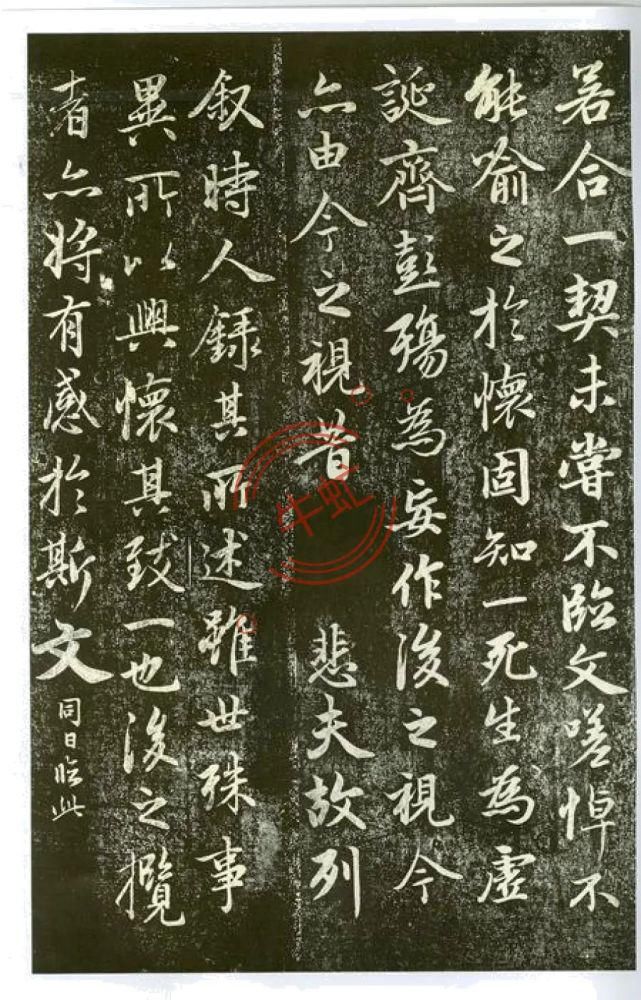 若合一契未嘗不臨文嗟悼不
能喻之於懷固知一死生為虛
誕齊彭殤為妄作後之視今
亦由今之視昔 悲夫故列
叙時人錄其所述雖世殊事
異所以興懷其致一也後之攬
者亦將有感於斯文
同日臨此
牛虹